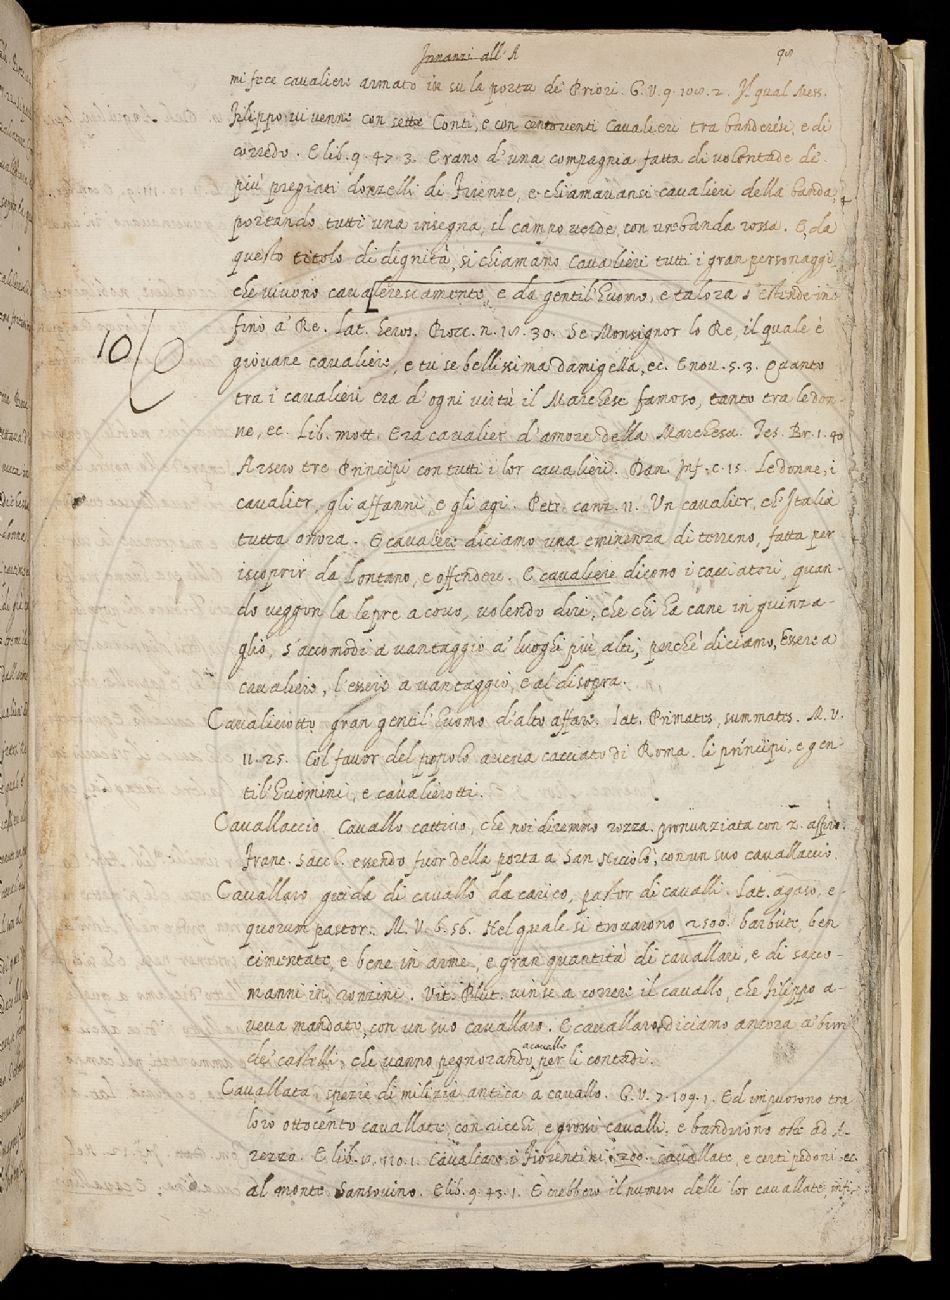 Innanzi all'A
mi fece cavaliere armato in su la porta de Priori. G. V. 9. 108. 2. Il qual Mess.
Filippo vi venne con sette Conti, e con centoventi Cavalieri tra banderesi, e di
corredo. E lib. 9. 47. 3. Erano d'una compagnia fatta di volontade de'
più pregiati donzelli di Firenze, e chiamavansi cavalieri della banda,
portando tutti una insegna, il campo verde, con una banda rossa. E, da
questo titolo di dignità, si chiamano Cavalieri tutti i gran personaggi
che vivono cavallerescamente, e da gentil'huomo, e talora s'estende in
fino a' Re. Lat. heros. Bocc. n. 18. 30. Se Monsignor lo Re, il quale è
10
giovane cavaliere, e tu se bellissima damigella, ec. E nov. 5. 3. Quanto
tra i cavalieri era d'ogni virtù il Marchese famoso, tanto tra le don-
ne, ec. Lib. mott. Era cavalier d'amore della Marchesa. Tes. Br. 1. 40
Arsero tre Principi con tutti i lor cavalieri. Dan. Inf. c. 15. Le donne, i
cavalier, gli affanni, e gli agi. Petr. canz. 11. Un cavalier, ch'Italia
tutta onora. E cavaliere diciamo una eminenza di terreno, fatta per
iscoprir da lontano, e offendere. E cavaliere dicono i cacciatori, quan-
do veggon la lepre a covo, volendo dire, che chi ha cane in guinza-
glio, s'accomodi a vantaggio a' luoghi più alti, perchè diciamo, Essere a
cavaliere, l'essere a vantaggio, e al disopra.
Cavalierotto gran gentil'huomo d'alto affare. Lat. Primates, summates. M. V.
11. 25. Col favor del popolo aveva cacciato di Roma li principi, e gen-
til'huomini, e cavalierotti.
Cavallaccio Cavallo cattivo, che noi diremmo rozza. pronunziata con z. aspro.
Franc. Sacch. essendo fuor della porta a San Niccolò, con un suo cavallaccio
Cavallaro guida di cavallo da carico, pastor di cavalli. Lat. agaso, e-
quorum pastor. M. V. 6. 56. Nel quale si trovarono 2500. barbute, ben
cimentate, e bene in arme, e gran quantità di cavallari, e di sacco-
manni in ronzini. Vit. Plut. vinse a correre il cavallo, che Filippo a-
veva mandato, con un suo cavallaro. E cavallaro, diciamo ancora a' birri
de' castelli, che vanno pegnorando a cavallo per li contadi.
Cavallata, spezie di milizia antica a cavallo. G. V. 7. 109. 1. Ed impuosono tra
loro ottocento cavallate, con ricchi e grossi cavalli. e bandirono oste ad A-
rezzo. E lib. 8. 110. 1. Cavalcaro i Fiorentini 1200. cavallate, e certi pedoni ec.
al monte Sansovino. E lib. 9. 43. 1. E crebbero il numero delle lor cavallate infi-